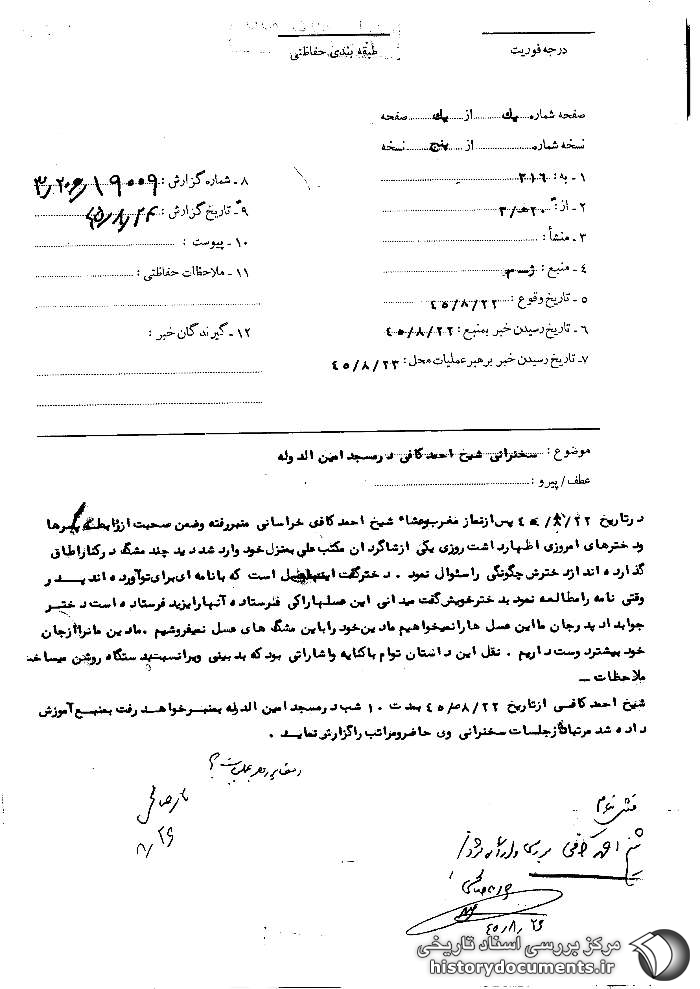 درجه فوریت
طبقه بندی حفاظتی
صفحه شماره یک از یک صفحه
نسخه شماره از پنج نسخه
۱ـ به: ۳۱۶
۲ـ از: ۲۰ه‍/۳
۳ـ منشأ:
۴ـ منبع:
۵ـ تاریخ وقوع: ۴۵/۸/۲۲
۶ـ تاریخ رسیدن خبر بمنبع: ۴۵/۸/۲۲
۷ـ تاریخ رسیدن خبر برهبر عملیات محل: ۴۵/۸/۲۳
۸ـ شماره گزارش: ۱۹۰۰۹/۲۰ه‍/۳
۹ـ تاریخ گزارش: ۴۵/۸/۲۴
۱۰ـ پیوست:
۱۱ـ ملاحظات حفاظتی:
۱۲ـ گیرندگان خبر:
موضوع: سخنرانی شیخ احمد کافی در مسجد امین الدوله
عطف/پیرو:
در تاریخ ۴۵/۸/۲۲ پس از نماز مغرب و عشاء شیخ احمد کافی خراسانی منبر رفته وضمن صحبت از رابطه پسرها
ودخترهای امروزی اظهار داشت روزی یکی از شاگردان مکتب علی بمنزل خود وارد شد دید چند مشگ در کنار اطاق
گذارده اند از دخترش چگونگی را سئوال نمود . دختر گفت عسل است که با نامه ای برای تو آورده اند پدر
وقتی نامه را مطالعه نمود بدخترخویش گفت میدانی این عسلها را کی فرستاده آنها را یزید فرستاده است دختر
جواب داد پدر جان ما این عسل ها را نمیخواهیم ما دین خود را باین مشگ های عسل نمیفروشیم .ما دین مان را از جان
خود بیشتر دوست داریم . نقل این داستان توام با کنایه واشاراتی بود که بدبینی ویرا نسبت بدستگاه روشن میساخت
ملاحظات ـ
شیخ احمد کافی از تاریخ ۴۵/۸/۲۲ بمدت ۱۰ شب در مسجد امین الدوله بمنبر خواهد رفت بمنبع آموزش
داده شد مرتبا در جلسات سخنرانی وی حاضر ومراتب را گزارش نماید .
۸/۲۶
شیخ احمد کافی
۴۵/۸/۲۶
مرکز بررسی اسناد تاریخی
historydocuments.ir